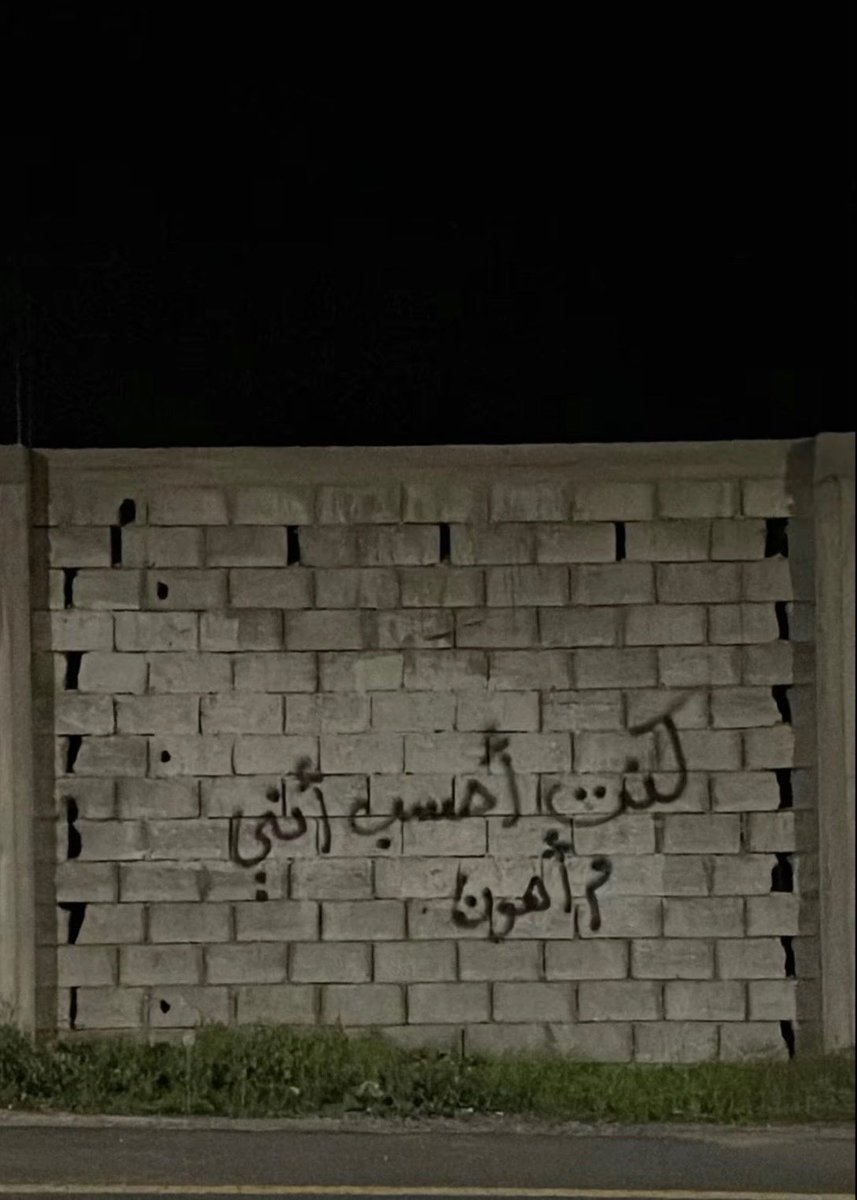 كنت أحسب أنني
م أهون